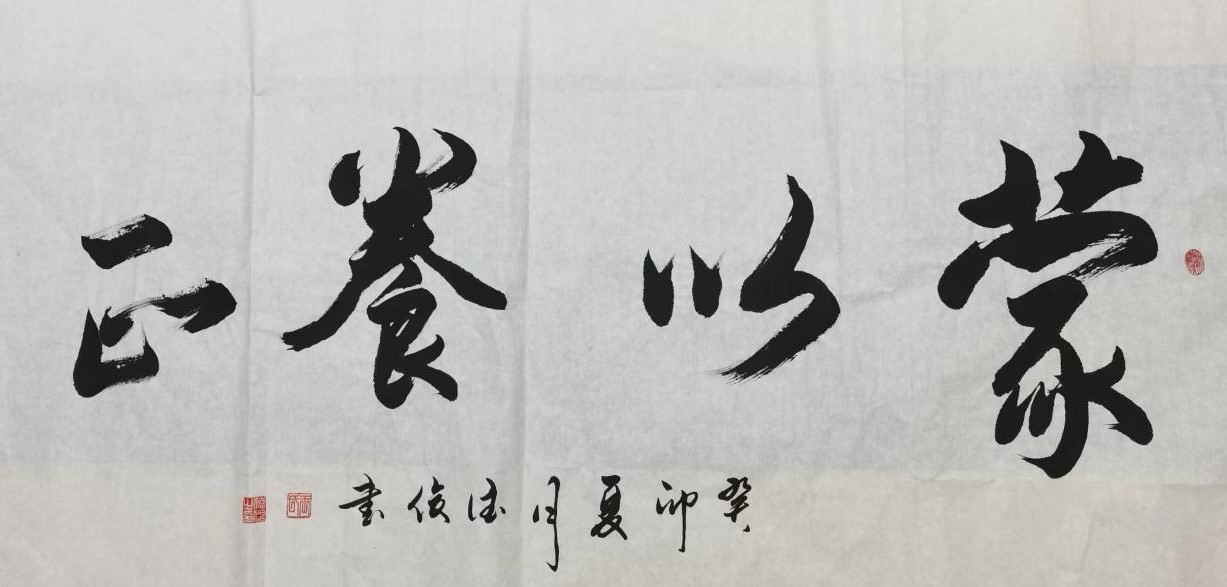 蒙以養正
癸卯夏月德俊書